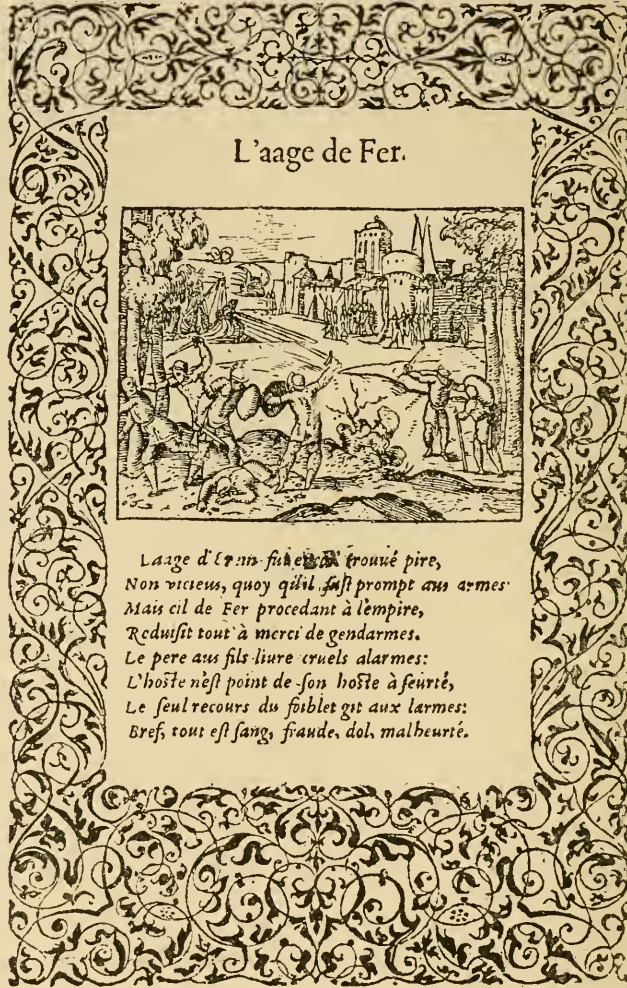 L'aage de Fer.
Laage d'Erain fut trouué pire,
Non vicieus, quoy qu'il fuſt prompt aus armes
Mais cil de Fer procedant à l'empire,
Reduiſit tout à merci de gendarmes.
Le pere aus fils liure cruels alarmes:
L'hoſte n'eſt point de ſon hoſte à ſeurté,
Le ſeul recours du foiblet git aux larmes:
Bref, tout eſt ſang, fraude, dol, malheurté.